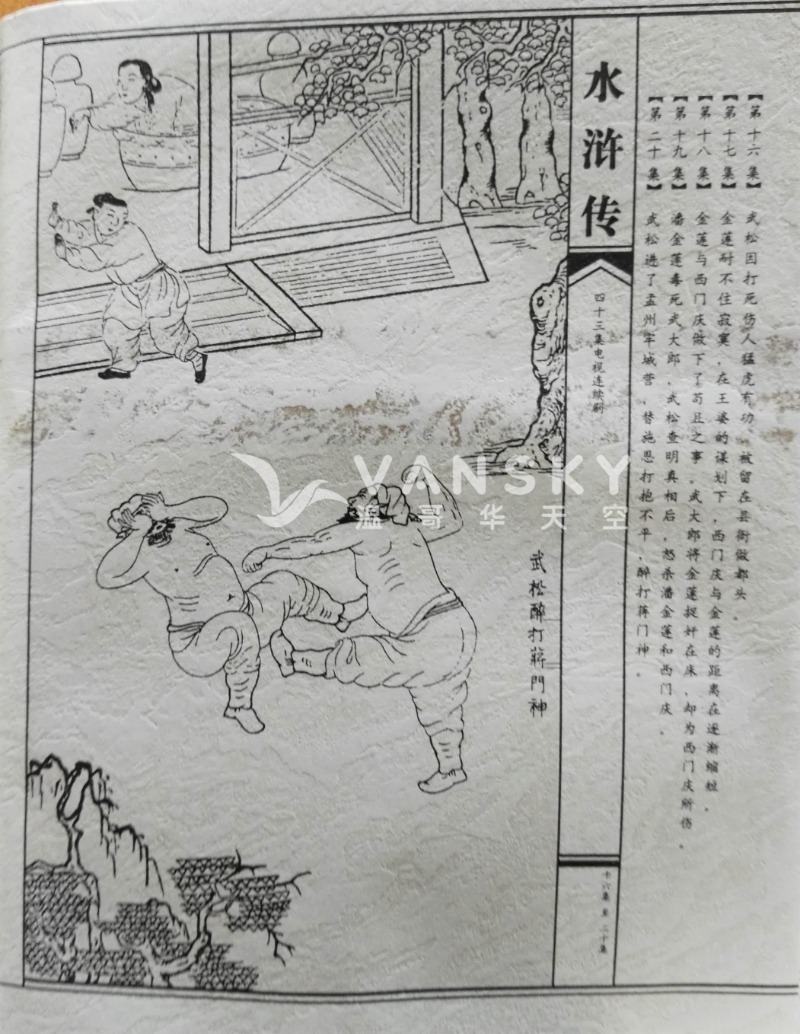 【第十六集】 武松因打死伤人猛虎有功,被留在县衙做都头。
【第十七集】 金莲耐不住寂寞,在王婆的谋划下,西门庆与金莲的距离在逐渐缩短。
【第十八集】 金莲与西门庆做下了苟且之事。武大郎将金莲捉奸在床,却为西门庆所伤。
【第十九集】 潘金莲毒死武大郎,武松查明真相后,怒杀潘金莲和西门庆。
【第二十集】 武松进了孟州牢城营,替施恩打抱不平,醉打蒋门神。
水浒传
四十三集电视连续剧
十六集 至 二十集
武松醉打蒋門神
VANSKY
温哥华天空